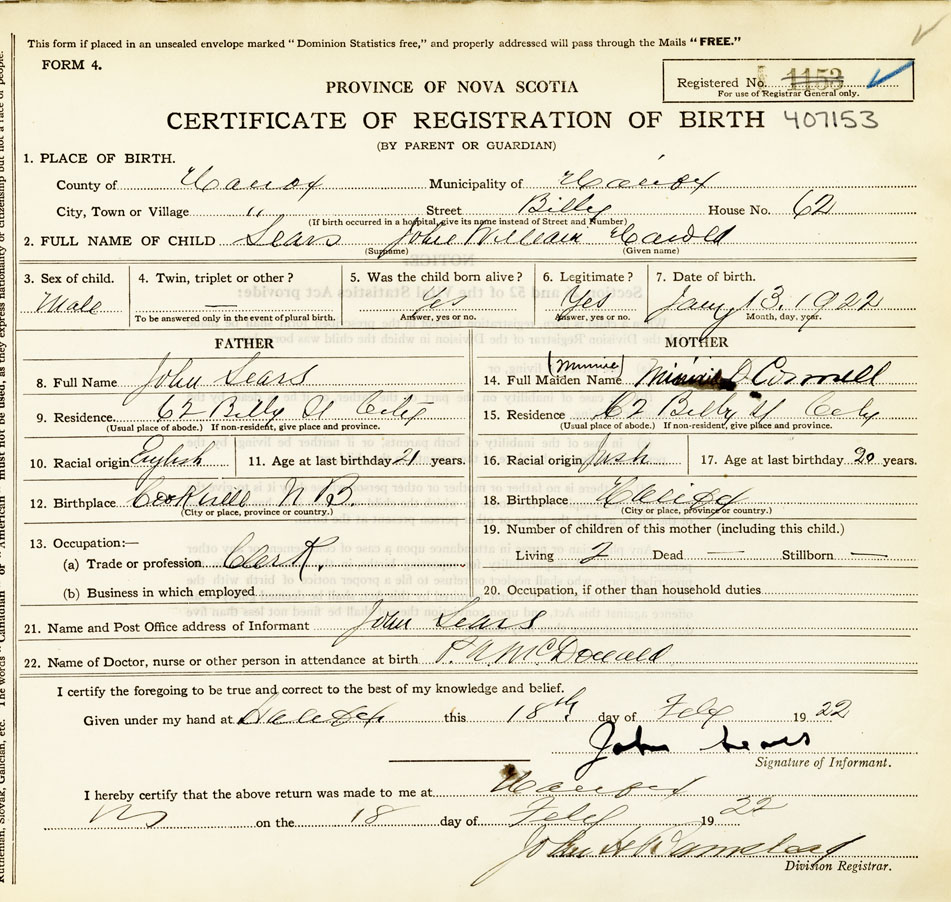 This form if placed in an unsealed envelope marked "Dominion Statistics free," and properly addressed will pass through the Mails "FREE."
FORM 4.
Registered No. 1153
For use of Registrar General only.
PROVINCE OF NOVA SCOTIA
CERTIFICATE OF REGISTRATION OF BIRTH 407153
(BY PARENT OR GUARDIAN)
1. PLACE OF BIRTH.
County of Halifax Municipality of Halifax
City, Town or Village " Street Bilby House No. 62
(If birth occurred in a hospital, give its name instead of Street and Number)
2. FULL NAME OF CHILD Sears John William Harold
(Surname) (Given name)
3. Sex of child. 4. Twin, triplet or other? 5. Was the child born alive? 6. Legitimate? 7. Date of birth.
Male — Yes Yes Jany 13. 1922
To be answered only in the event of plural birth. Answer, yes or no. Answer, yes or no. Month, day, year.
FATHER
8. Full Name John Sears
9. Residence 62 Bilby St City
(Usual place of abode.) If non-resident, give place and province.
10. Racial origin English 11. Age at last birthday 21 years.
12. Birthplace N B.
(City or place, province or country.)
13. Occupation:—
(a) Trade or profession Clerk.
(b) Business in which employed
MOTHER
(Minnie)
14. Full Maiden Name Minnie
15. Residence 62 Bilby St City
(Usual place of abode.) If non-resident, give place and province.
16. Racial origin Irish 17. Age at last birthday 20 years.
18. Birthplace Halifax
(City or place, province or country.)
19. Number of children of this mother (including this child.)
Living 2 Dead — Stillborn —
20. Occupation, if other than household duties
21. Name and Post Office address of Informant John Sears
22. Name of Doctor, nurse or other person in attendance at birth McDonald
I certify the foregoing to be true and correct to the best of my knowledge and belief.
Given under my hand at Halifax this 18th day of Feby 1922
John Sears
Signature of Informant.
I hereby certify that the above return was made to me at Halifax
NS on the 18 day of Feby 1922
John
Division Registrar.